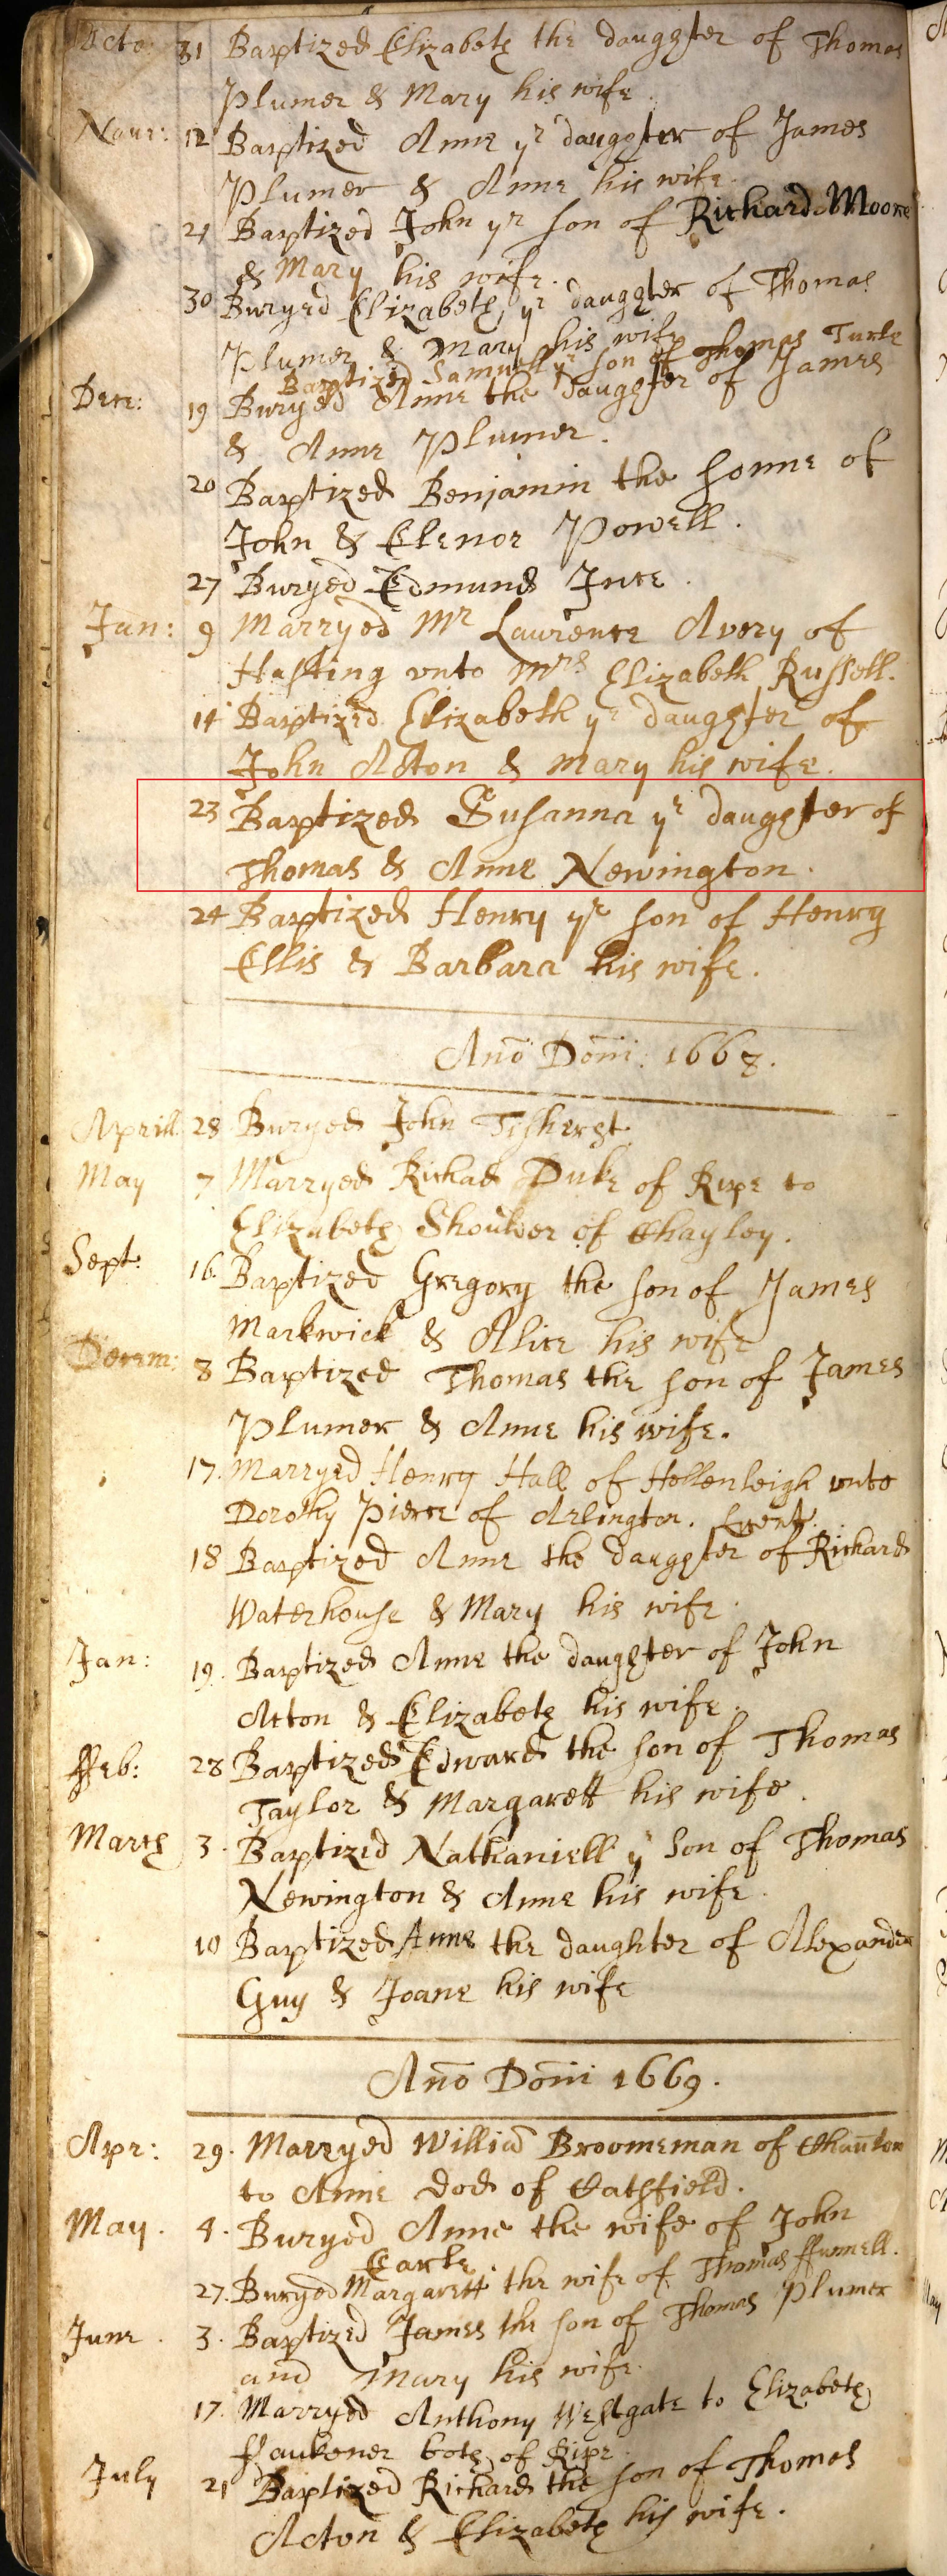 Octo: 31 Baptized Elizabeth the daughter of Thomas
Plumer & Mary his wife
Novr: 12 Baptized Anne yr daughter of James
Plumer & Anne his wife.
21 Baptized John yr son of Richard Moore
& Mary his wife.
30 Buryed Elizabeth yr daughter of Thomas
Plumer & Mary his wife
Baptized Samuell yr son of Thomas Turle
Dece: 19 Buryed Anne the daughter of James
& Anne Plumer.
20 Baptized Benjamin the sonne of
John & Elenor Powell.
27 Buryed Edmund Ince.
Jan: 9 Marryed Mr Laurence Avery of
Hasting vnto Mrs Elizabeth Russell.
14 Baptized Elizabeth yr daughter of
John Acton & Mary his wife.
23 Baptized Susanna yr daughter of
Thomas & Anne Newington.
24 Baptized Henry yr son of Henry
Ellis & Barbara his wife.
Ano Domi: 1668.
Aprill 28 Buryed John Tisherst
May 7 Marryed Richad Duke of Ripe to
Elizabeth Shoulder of Chayley.
Sept: 16 Baptized Gregory the son of James
Markwick & Alice his wife
Decem: 8 Baptized Thomas the son of James
Plumer & Anne his wife.
17. Marryed Henry Hall of Hellenleigh vnto
Dorothy Pierce of Arlington.
18 Baptized Anne the daughter of Richard
Waterhouse & Mary his wife.
Jan: 19. Baptized Anne the daughter of John
Acton & Elizabeth his wife.
ffeb: 28 Baptized Edward the son of Thomas
Taylor & Margarett his wife.
March 3. Baptized Nathaniell y son of Thomas
Newington & Anne his wife.
10 Baptized Anne the daughter of Alexander
Guy & Joane his wife
Ano Domi 1669.
Apr: 29. Marryed Willia Broomeman of Chaunton
to Anne Dod of Cathfield.
May. 4. Buryed Anne the wife of John
Earle.
27. Buryed Margarett the wife of Thomas ffunnell.
June. 3. Baptized James the son of Thomas Plumer
and Mary his wife.
17. Marryed Anthony Westgate to Elizabeth
ffaukener both of Ripe
July 21 Baptized Richard the son of Thomas
Acton & Elizabeth his wife.